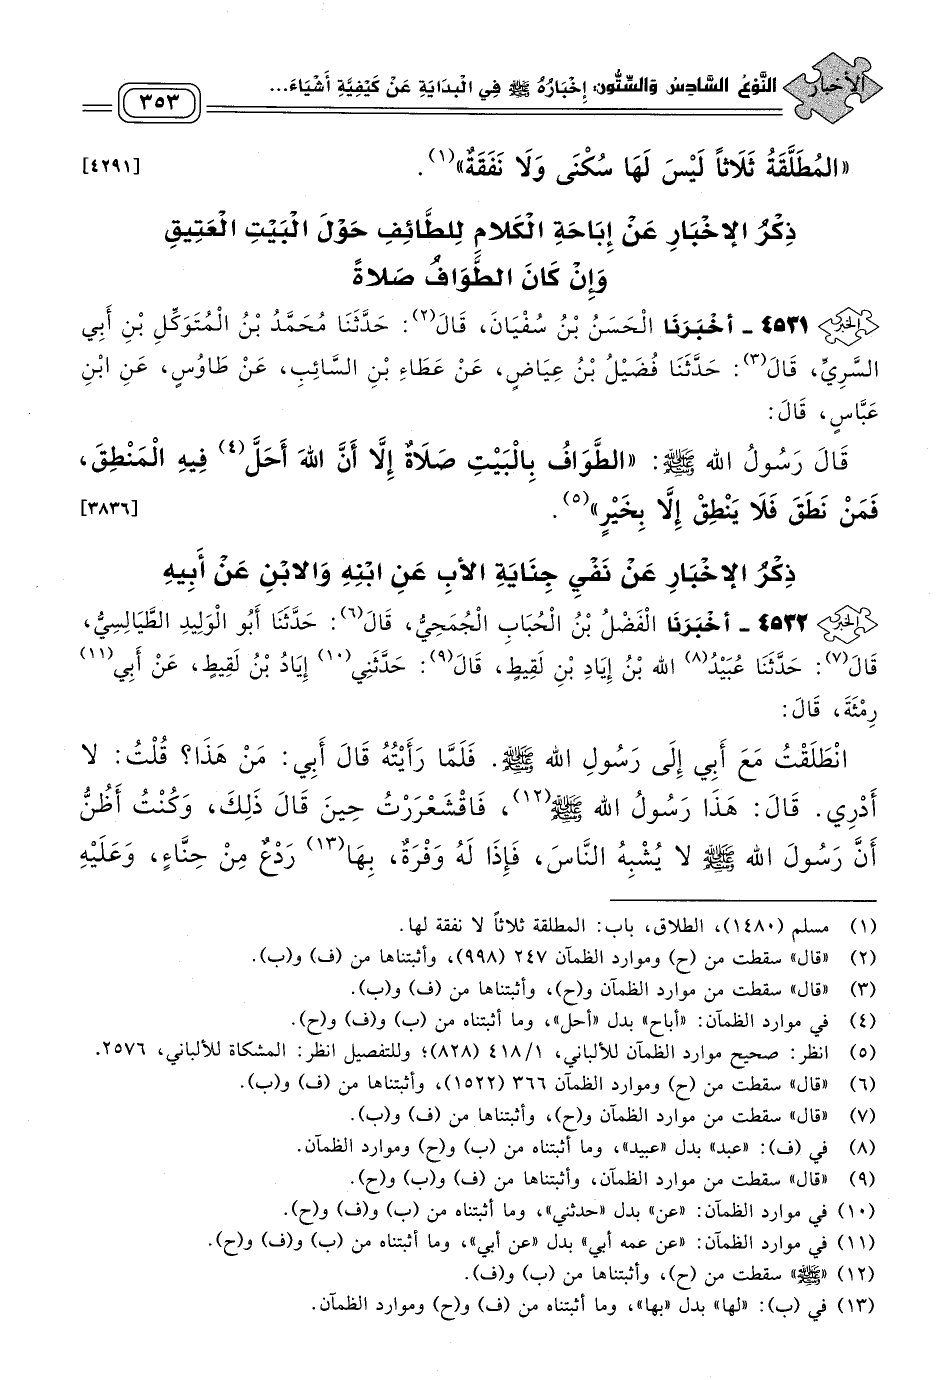 الأخبار
النَّوْعُ السَّادِسُ وَالسِّتُّونَ: إِخْبَارُهُ ﷺ فِي الْبَدَايَةِ عَنْ كَيْفِيَّةِ أَشْيَاءَ...
٣٥٣
«المُطَلَّقَةُ ثَلَاثاً لَيْسَ لَهَا سُكْنَى وَلَا نَفَقَةٌ»(١). [٤٢٩١]
ذِكْرُ الإخْبَارِ عَنْ إبَاحَةِ الْكَلامِ لِلطَّائِفِ حَوْلَ الْبَيْتِ الْعَتِيقِ
وَإنْ كَانَ الطَّوَافُ صَلاةً
٤٥٣١ - أخْبَرَنَا الْحَسَنُ بْنُ سُفْيَانَ، قَالَ(٢): حَدَّثَنَا مُحَمَّدُ بْنُ الْمُتَوَكِّلِ بْنِ أَبِي
السَّرِيِّ، قَالَ(٣): حَدَّثَنَا فُضَيْلُ بْنُ عِيَاضٍ، عَنْ عَطَاءِ بْنِ السَّائِبِ، عَنْ طَاوُسٍ، عَنِ ابْنِ
عَبَّاسٍ، قَالَ:
قَالَ رَسُولُ الله ﷺ: «الطَّوَافُ بِالْبَيْتِ صَلَاةٌ إِلَّا أَنَّ اللهَ أَحَلَّ(٤) فِيهِ الْمَنْطِقَ،
فَمَنْ نَطَقَ فَلَا يَنْطِقْ إِلَّا بِخَيْرٍ»(٥). [٣٨٣٦]
ذِكْرُ الإخْبَارِ عَنْ نَفْيِ جِنَايَةِ الأبِ عَنِ ابْنِهِ وَالابْنِ عَنْ أَبِيهِ
٤٥٣٢ - أخْبَرَنَا الْفَضْلُ بْنُ الْحُبَابِ الْجُمَحِيُّ، قَالَ(٦): حَدَّثَنَا أَبُو الْوَلِيدِ الطَّيَالِسِيُّ،
قَالَ(٧): حَدَّثَنَا عُبَيْدُ(٨) الله بْنُ إِيَادِ بْنِ لَقِيطٍ، قَالَ(٩): حَدَّثَنِي(١٠) إِيَادُ بْنُ لَقِيطٍ، عَنْ أَبِي(١١)
رِمْثَةَ، قَالَ:
انْطَلَقْتُ مَعَ أَبِي إِلَى رَسُولِ الله ﷺ. فَلَمَّا رَأَيْتُهُ قَالَ أَبِي: مَنْ هَذَا؟ قُلْتُ: لا
أَدْرِي. قَالَ: هَذَا رَسُولُ الله ﷺ(١٢)، فَاقْشَعْرَرْتُ حِينَ قَالَ ذَلِكَ، وَكُنْتُ أَظُنُّ
أَنَّ رَسُولَ الله ﷺ لا يُشْبِهُ النَّاسَ، فَإِذَا لَهُ وَفْرَةٌ، بِهَا(١٣) رَدْعٌ مِنْ حِنَّاءٍ، وَعَلَيْهِ
(١) مسلم (١٤٨٠)، الطلاق، باب: المطلقة ثلاثاً لا نفقة لها.
(٢) «قال» سقطت من (ح) وموارد الظمآن ٢٤٧ (٩٩٨)، وأثبتناها من (ف) و(ب).
(٣) «قال» سقطت من موارد الظمآن و(ح)، وأثبتناها من (ف) و(ب).
(٤) في موارد الظمآن: «أباح» بدل «أحل»، وما أثبتناه من (ب) و(ف) و(ح).
(٥) انظر: صحيح موارد الظمآن للألباني، ٤١٨/١ (٨٢٨)؛ وللتفصيل انظر: المشكاة للألباني، ٢٥٧٦.
(٦) «قال» سقطت من (ح) وموارد الظمآن ٣٦٦ (١٥٢٢)، وأثبتناها من (ف) و(ب).
(٧) «قال» سقطت من موارد الظمآن و(ح)، وأثبتناها من (ف) و(ب).
(٨) في (ف): «عبد» بدل «عبيد»، وما أثبتناه من (ب) و(ح) وموارد الظمآن.
(٩) «قال» سقطت من موارد الظمآن، وأثبتناها من (ف) و(ب) و(ح).
(١٠) في موارد الظمآن: «عن» بدل «حدثني»، وما أثبتناه من (ب) و(ف) و(ح).
(١١) في موارد الظمآن: «عن عمه أبي» بدل «عن أبي»، وما أثبتناه من (ب) و(ف) و(ح).
(١٢) «ﷺ» سقطت من (ح)، وأثبتناها من (ب) و(ف).
(١٣) في (ب): «لها» بدل «بها»، وما أثبتناه من (ف) و(ح) وموارد الظمآن.